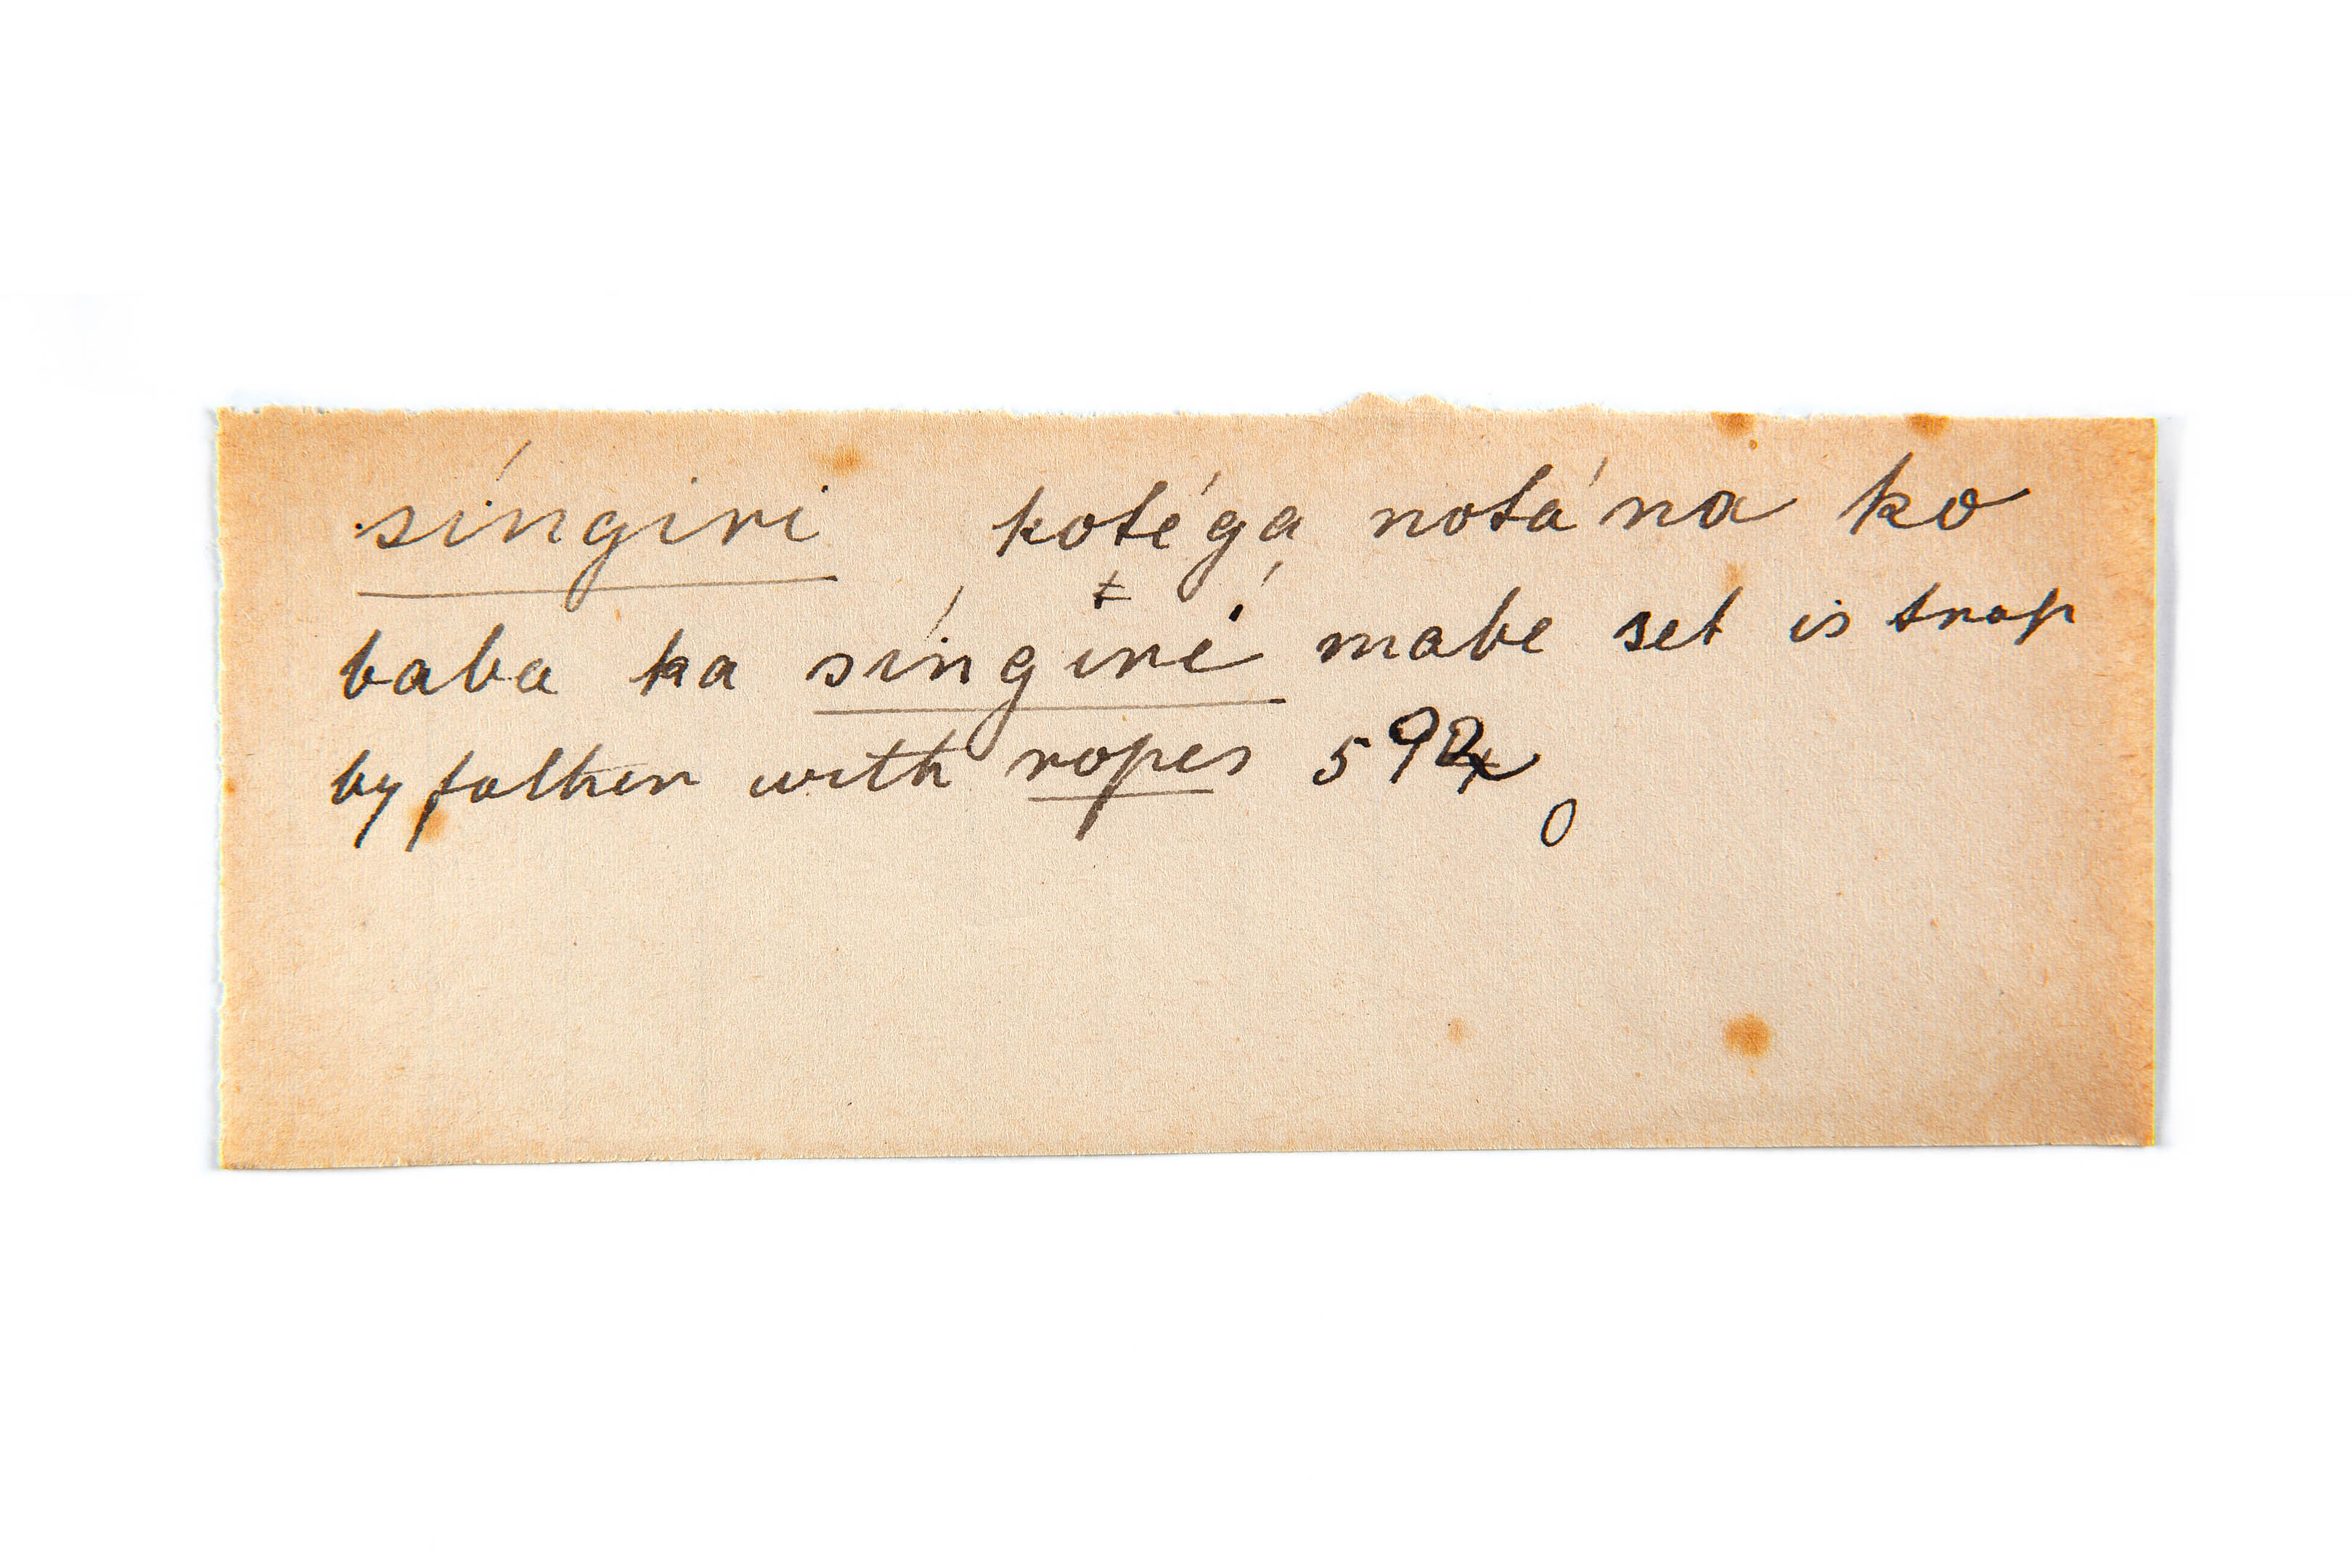 síngiri kotéga notána ko
baba ka síngiré mabe set is trap
by father with ropes